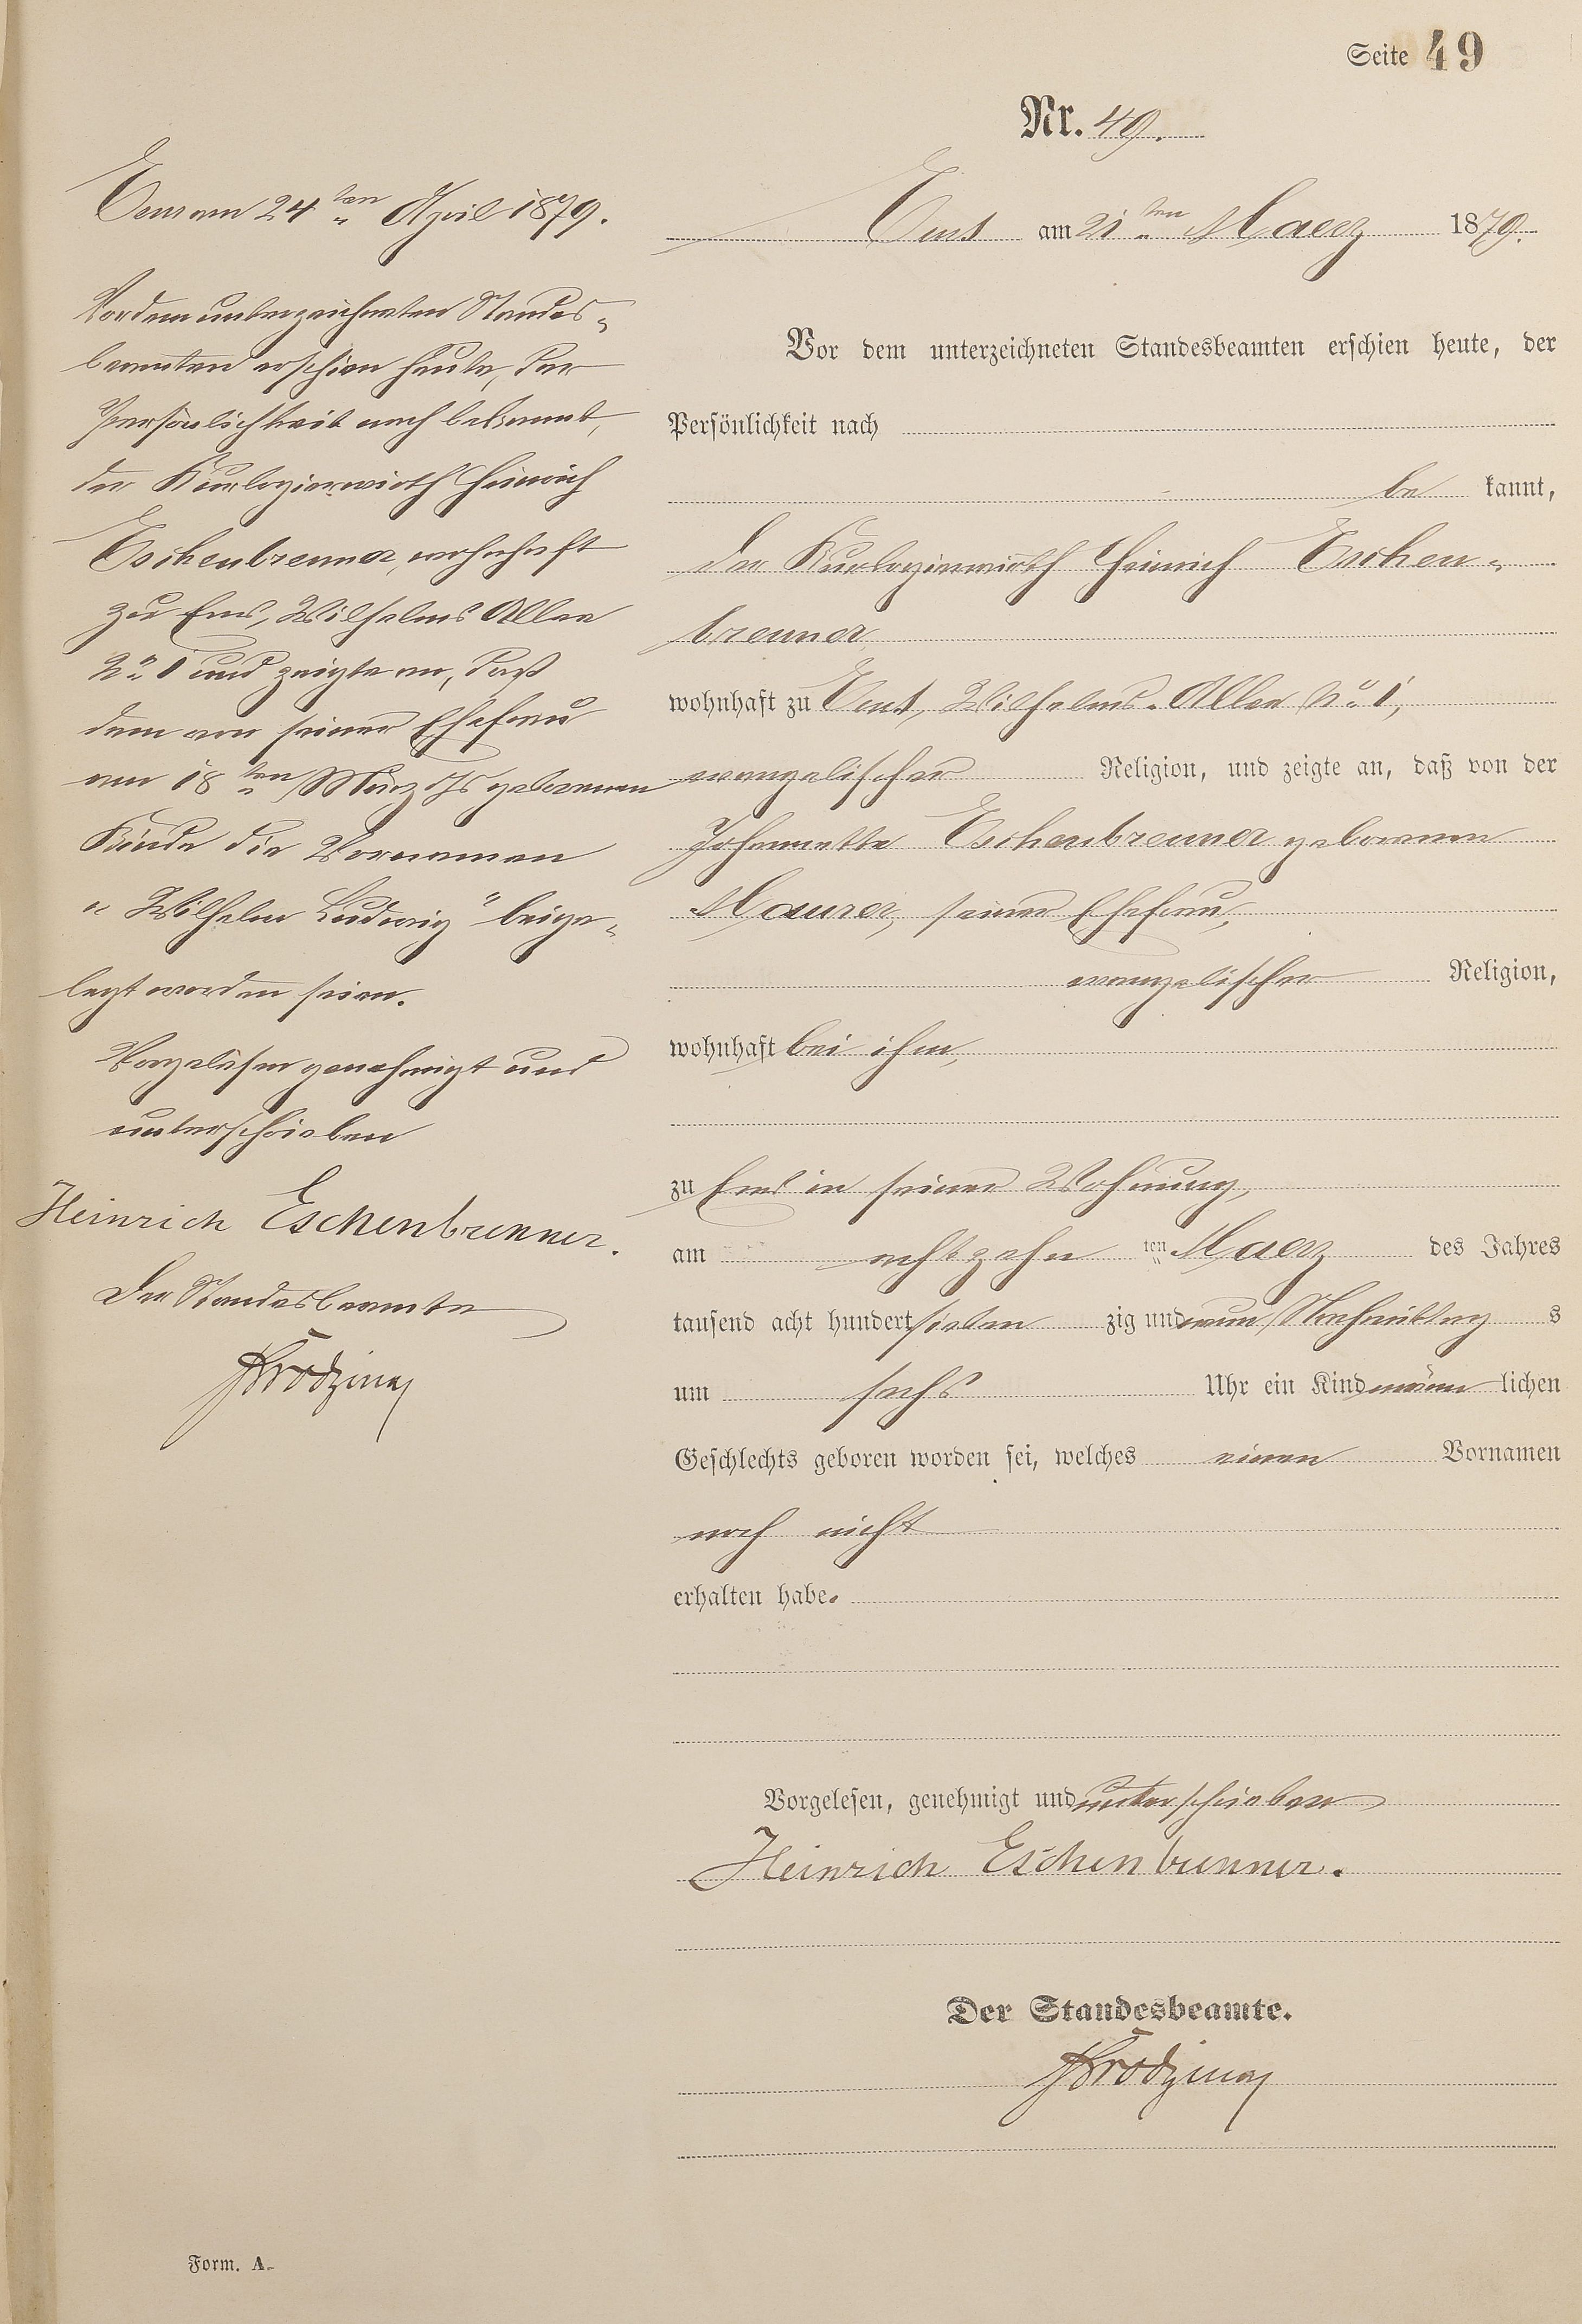 Seite 49
Nr. 49.
Ems am 21ten Maerz 1879.
Vor dem unterzeichneten Standesbeamten erschien heute, der
Persönlichkeit nach
be kannt,
der Kurlogierwirth Heinrich Eschen-
brenner,
wohnhaft zu Ems, Wilhelms-Allee No. 1,
evangelischer Religion, und zeigte an, daß von der
Johannette Eschenbrenner geborenen
Maurer, seiner Ehefrau,
evangelischer Religion,
wohnhaft bei ihm,
zu Ems in seiner Wohnung,
am achtzehn ten Maerz des Jahres
tausend acht hundert sieben zig und neun Nachmittag s
um sechs Uhr ein Kind männ lichen
Geschlechts geboren worden sei, welches einen Vornamen
noch nicht
erhalten habe.
Vorgelesen, genehmigt und unterschrieben
Heinrich Eschenbrenner.
Der Standesbeamte.
Ems am 24ten April 1879.
Vor dem unterzeichneten Standes-
beamten erschien heute, der
Persönlichkeit nach bekannt,
der Kurlogierwirth Heinrich
Eschenbrenner, wohnhaft
zu Ems, Wilhelms Allee
No. 1 und zeigte an, daß
dem von seiner Ehefrau
am 18ten März Js geborenen
Kinde die Vornamen
"Wilhelm Ludwig" beige-
legt worden seien.
Vorgelesen genehmigt und
unterschrieben
Heinrich Eschenbrenner.
Der Standesbeamte
Form. A.